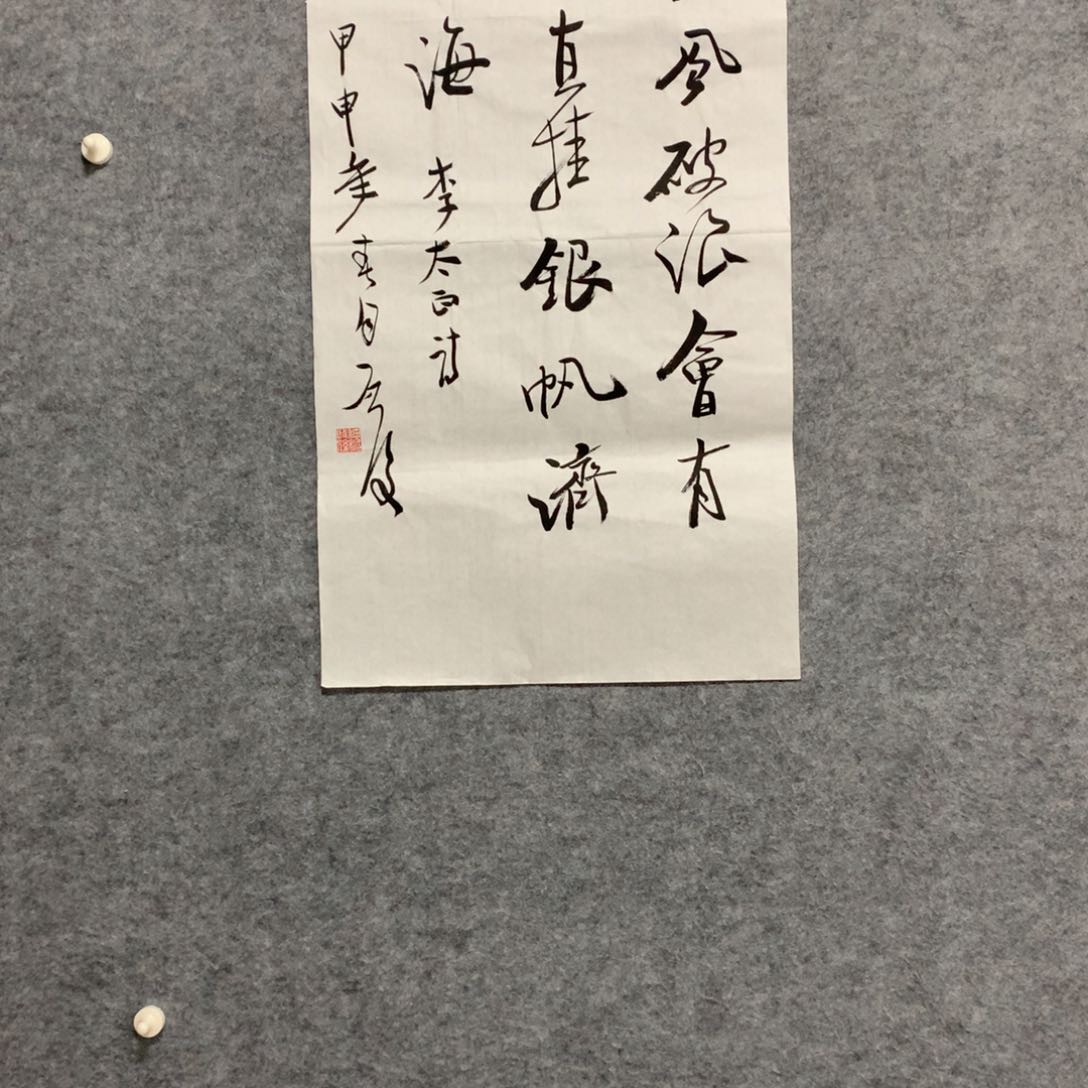 風破浪會有
直挂銀帆濟
海 李太白詩
甲申年春月